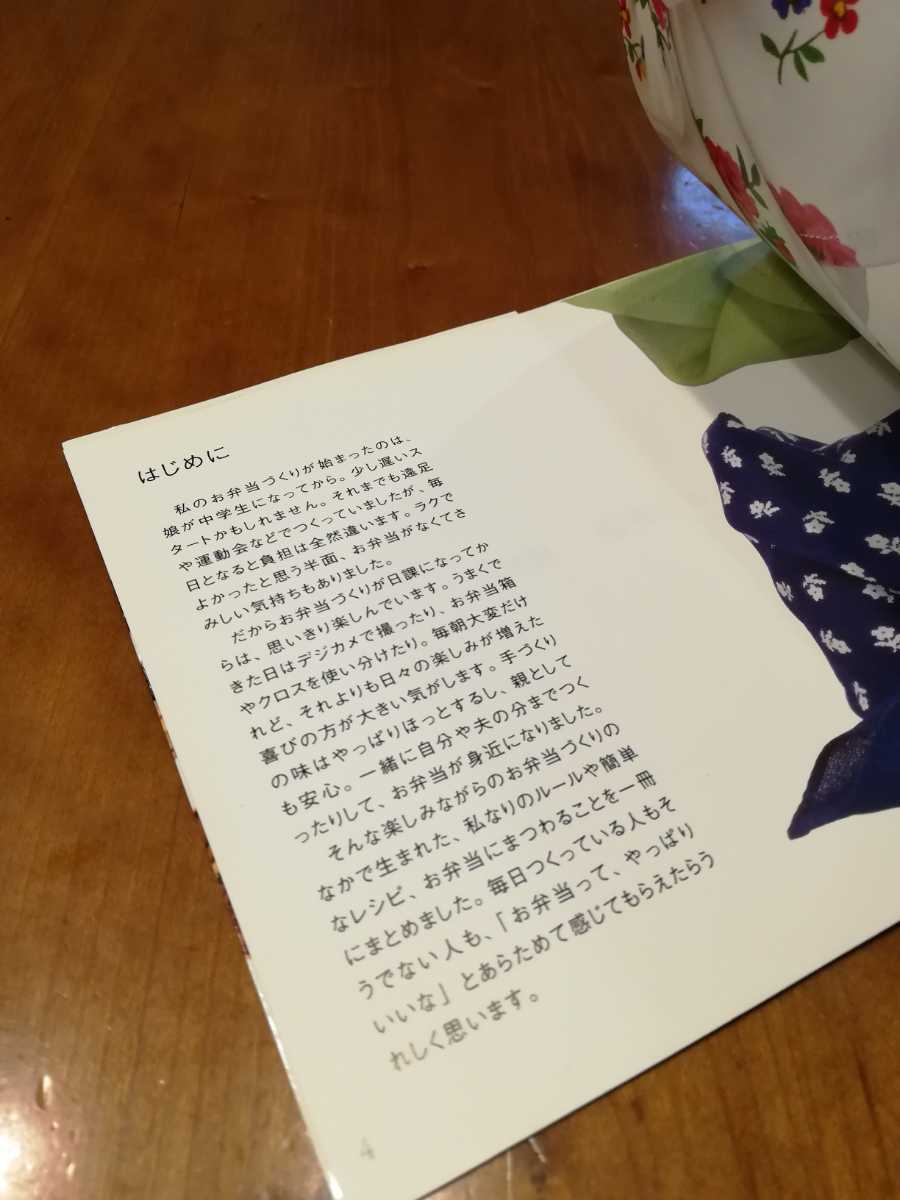 はじめに
私のお弁当づくりが始まったのは、
娘が中学生になってから。少し遅いス
タートかもしれません。それまでも遠足
や運動会などでつくっていましたが、毎
日となると負担は全然違います。ラクで
よかったと思う半面、お弁当がなくてさ
みしい気持ちもありました。
だからお弁当づくりが日課になってか
らは、思いきり楽しんでいます。うまくで
きた日はデジカメで撮ったり、お弁当箱
やクロスを使い分けたり。毎朝大変だけ
れど、それよりも日々の楽しみが増えた
喜びの方が大きい気がします。手づくり
の味はやっぱりほっとするし、親として
も安心。一緒に自分や夫の分までつく
ったりして、お弁当が身近になりました。
そんな楽しみながらのお弁当づくりの
なかで生まれた、私なりのルールや簡単
なレシピ、お弁当にまつわることを一冊
にまとめました。毎日つくっている人もそ
うでない人も、「お弁当って、やっぱり
いいな」とあらためて感じてもらえたらう
れしく思います。
4